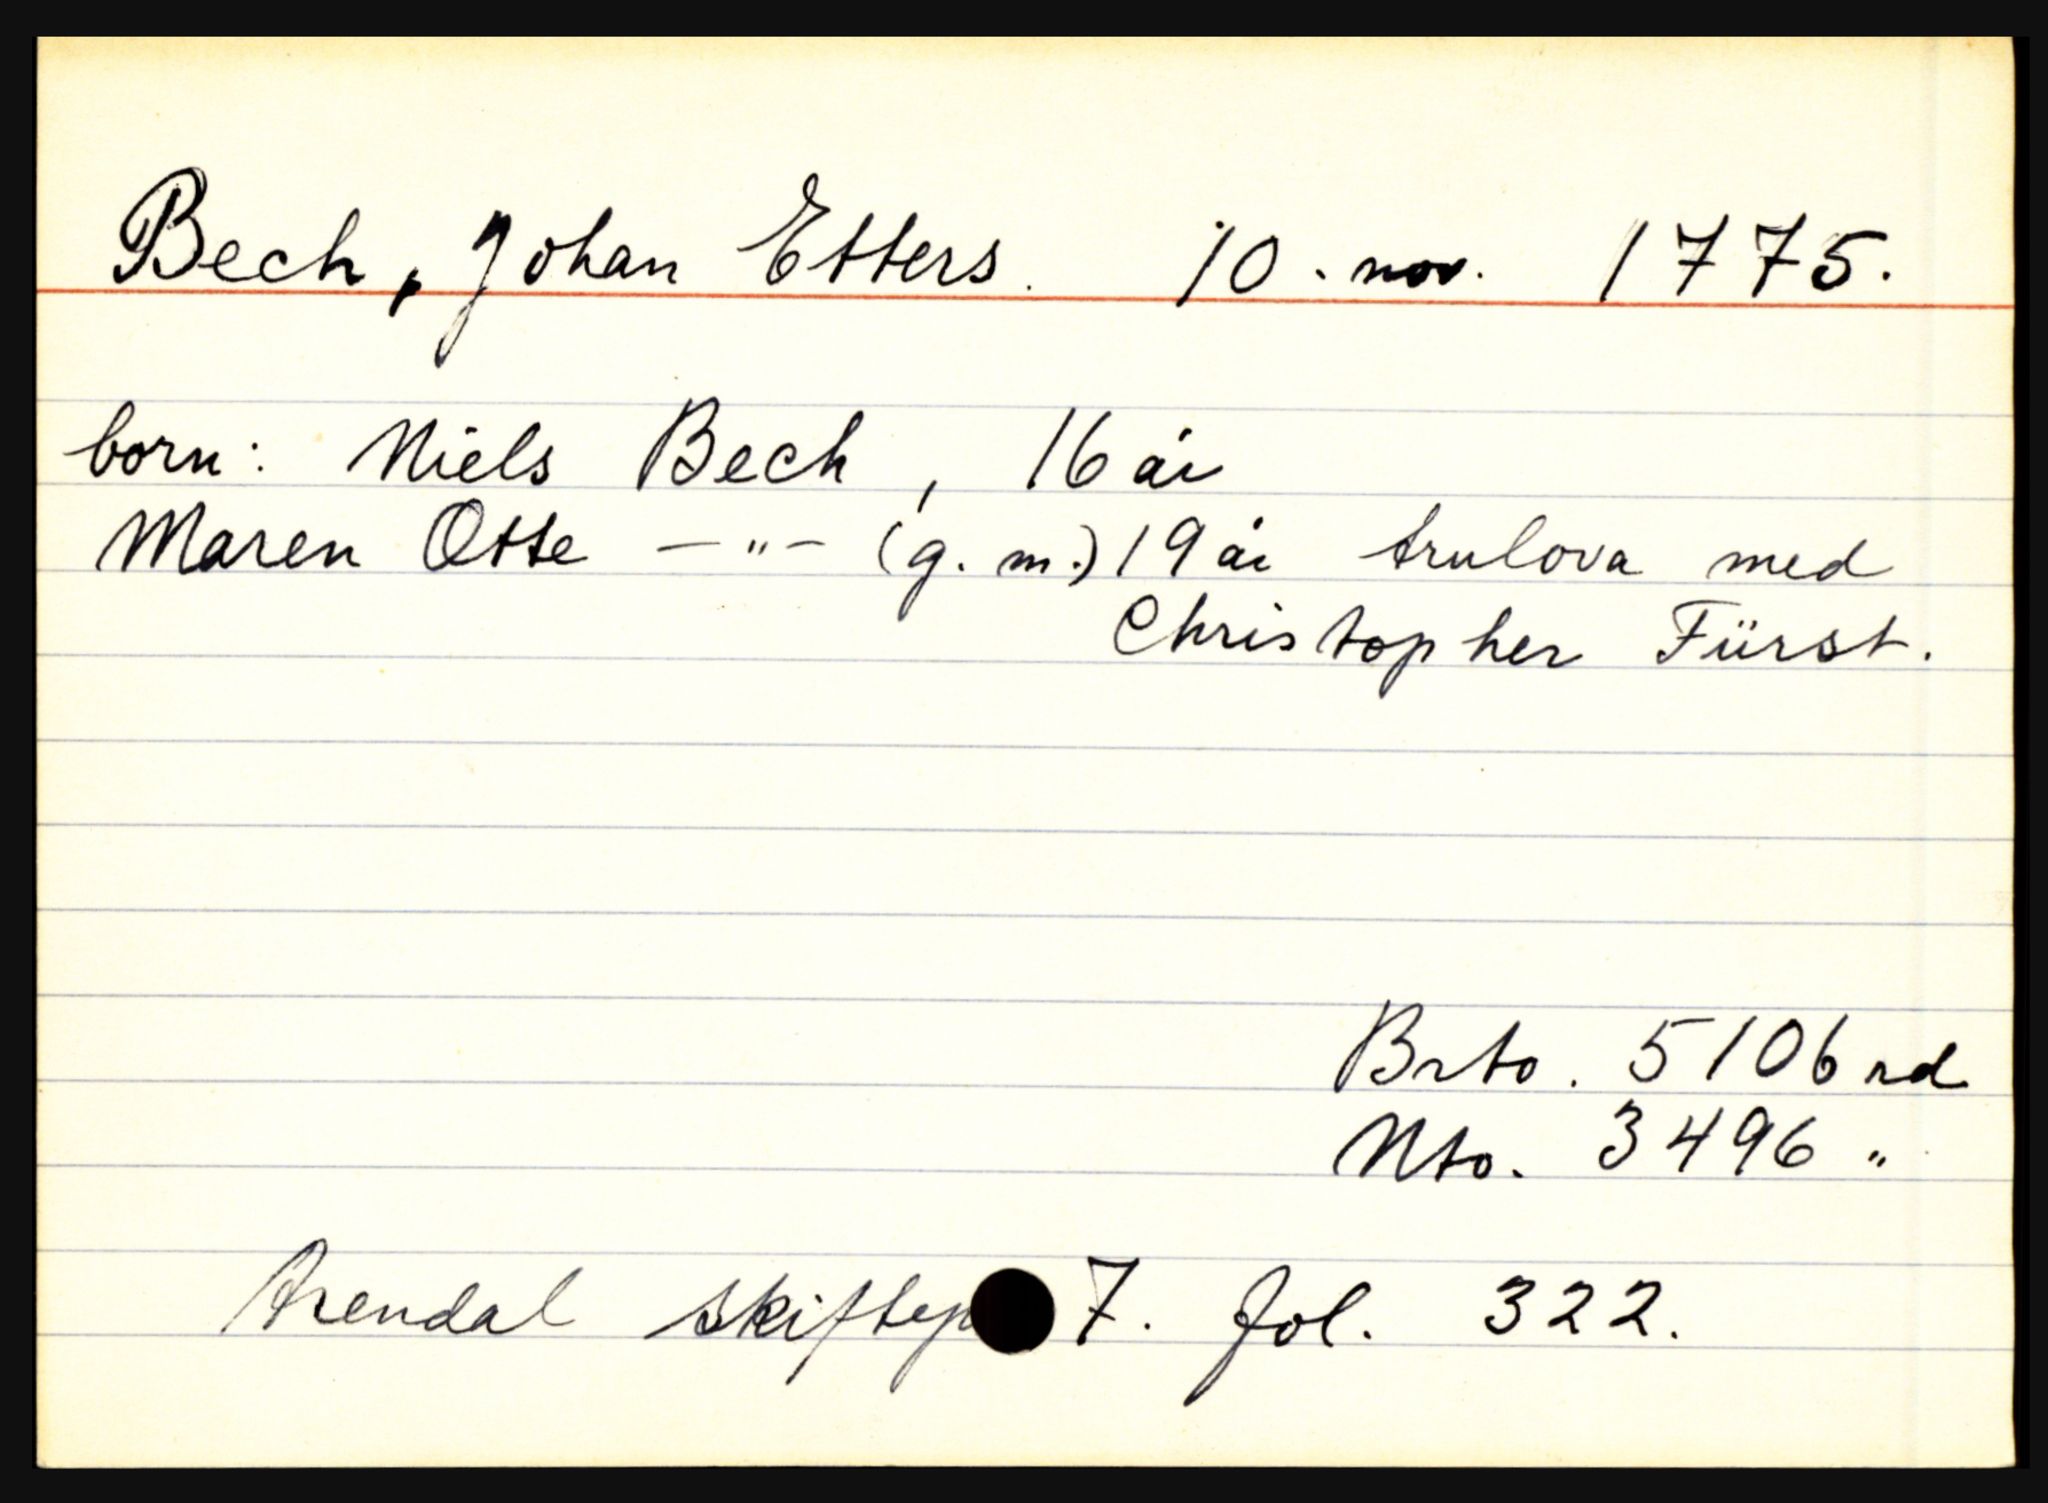 Bech, Johan Etters. 10. nov. 1775.
born: Niels Bech, 16 år
Maren Otte —"— (g.m.) 19 år trulova med
Christopher Fürst.
Brto. 5106 rd
Nto. 3496 "
Arendal skiftep 7. fol. 322.